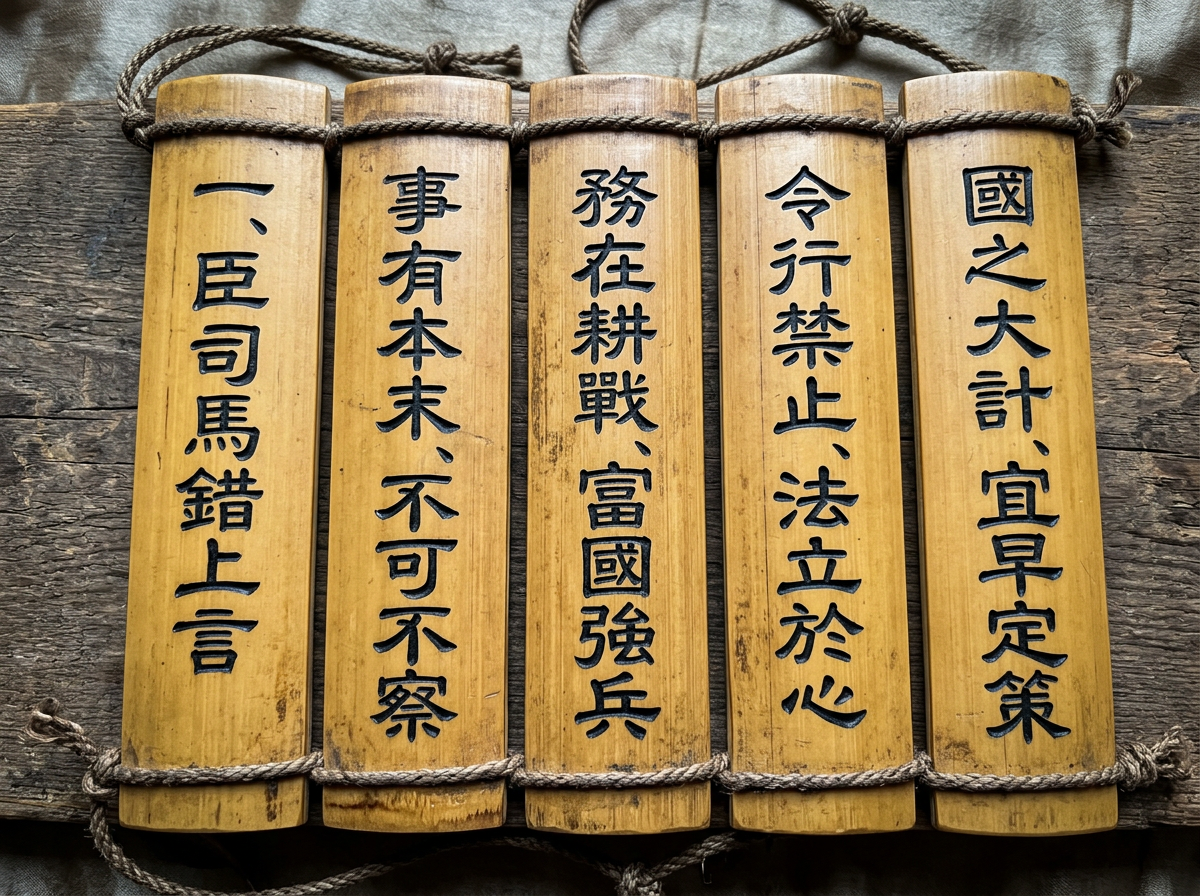 一、臣司馬錯上言
事有本末、不可不察
務在耕戰、富國強兵
令行禁止、法立於心
國之大計、宜早定策